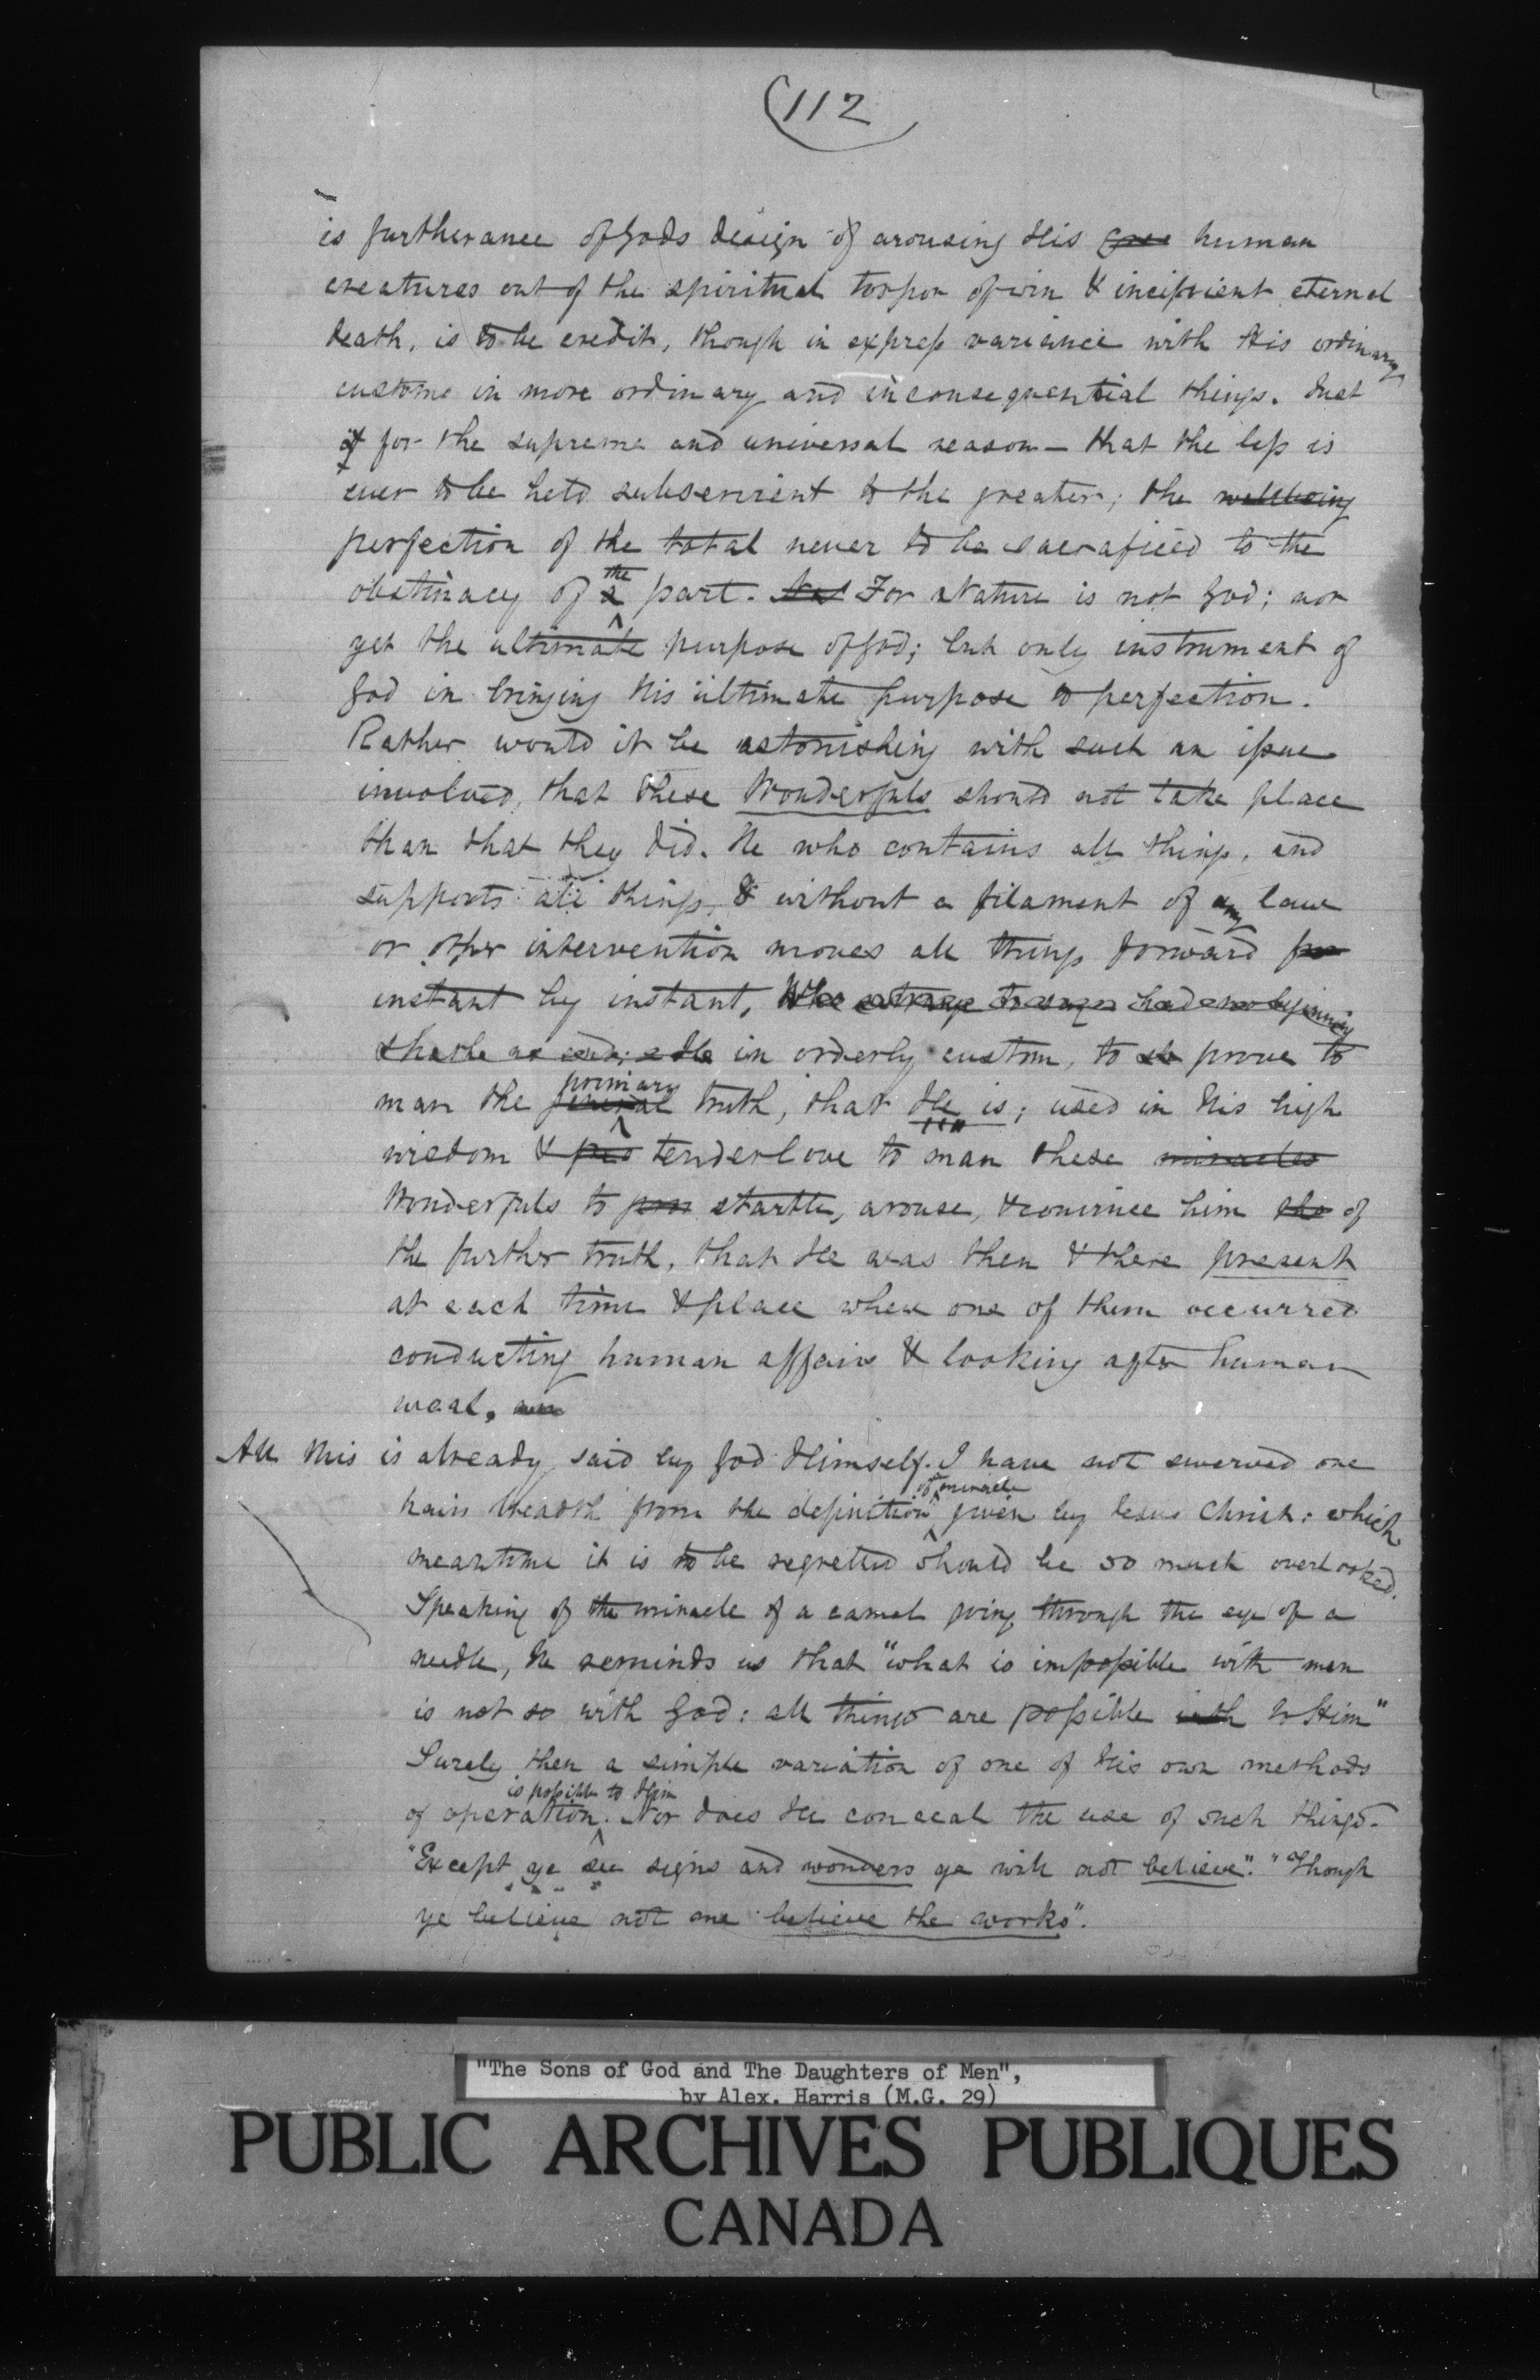 112
is furtherance of Gods design of arousing His human
creatures out of the spiritual torpor of sin & incipient eternal
death, is to be credit, though in express variance with His ordinary
customs in more ordinary and inconsequential things. And
for the supreme and universal reason — that the less is
ever to be held subservient to the greater; the wellbeing
perfection of the total never to be sacraficed to the
obstinacy of the part. For Nature is not God; nor
yet the ultimate purpose of God; but only instrument of
God in bringing His ultimate purpose to perfection.
Rather would it be astonishing with such an issue
involved, that these Wonderfuls should not take place
than that they did. He who contains all things, and
supports all things, & without a filament of any law
or other intervention moves all things forward
instant by instant, Who strange to say had no beginning
in orderly custom, to prove to
man the general primary truth, that He is; used in His high
wisdom & tender love to man these miracles
Wonderfuls to startle, arouse, & convince him of
the further truth, that He was then & there present
at each time & place when one of them occurred
conducting human affairs & looking after human
weal.
All this is already said by God Himself. I have not swerved one
hairs breadth from the definition of miracle given by Jesus Christ: which
meantime it is to be regretted should be so much overlooked.
Speaking of the miracle of a camel going through the eye of a
needle, He reminds us that "what is impossible with men
is not so with God: all things are possible with to Him"
Surely then a simple variation of one of His own methods
of operation is possible to Him. Nor does He conceal the use of such things.
"Except ye see signs and wonders ye will not believe". "Though
ye believe not me believe the works".
"The Sons of God and The Daughters of Men",
by Alex. Harris (M.G. 29)
PUBLIC ARCHIVES PUBLIQUES
CANADA